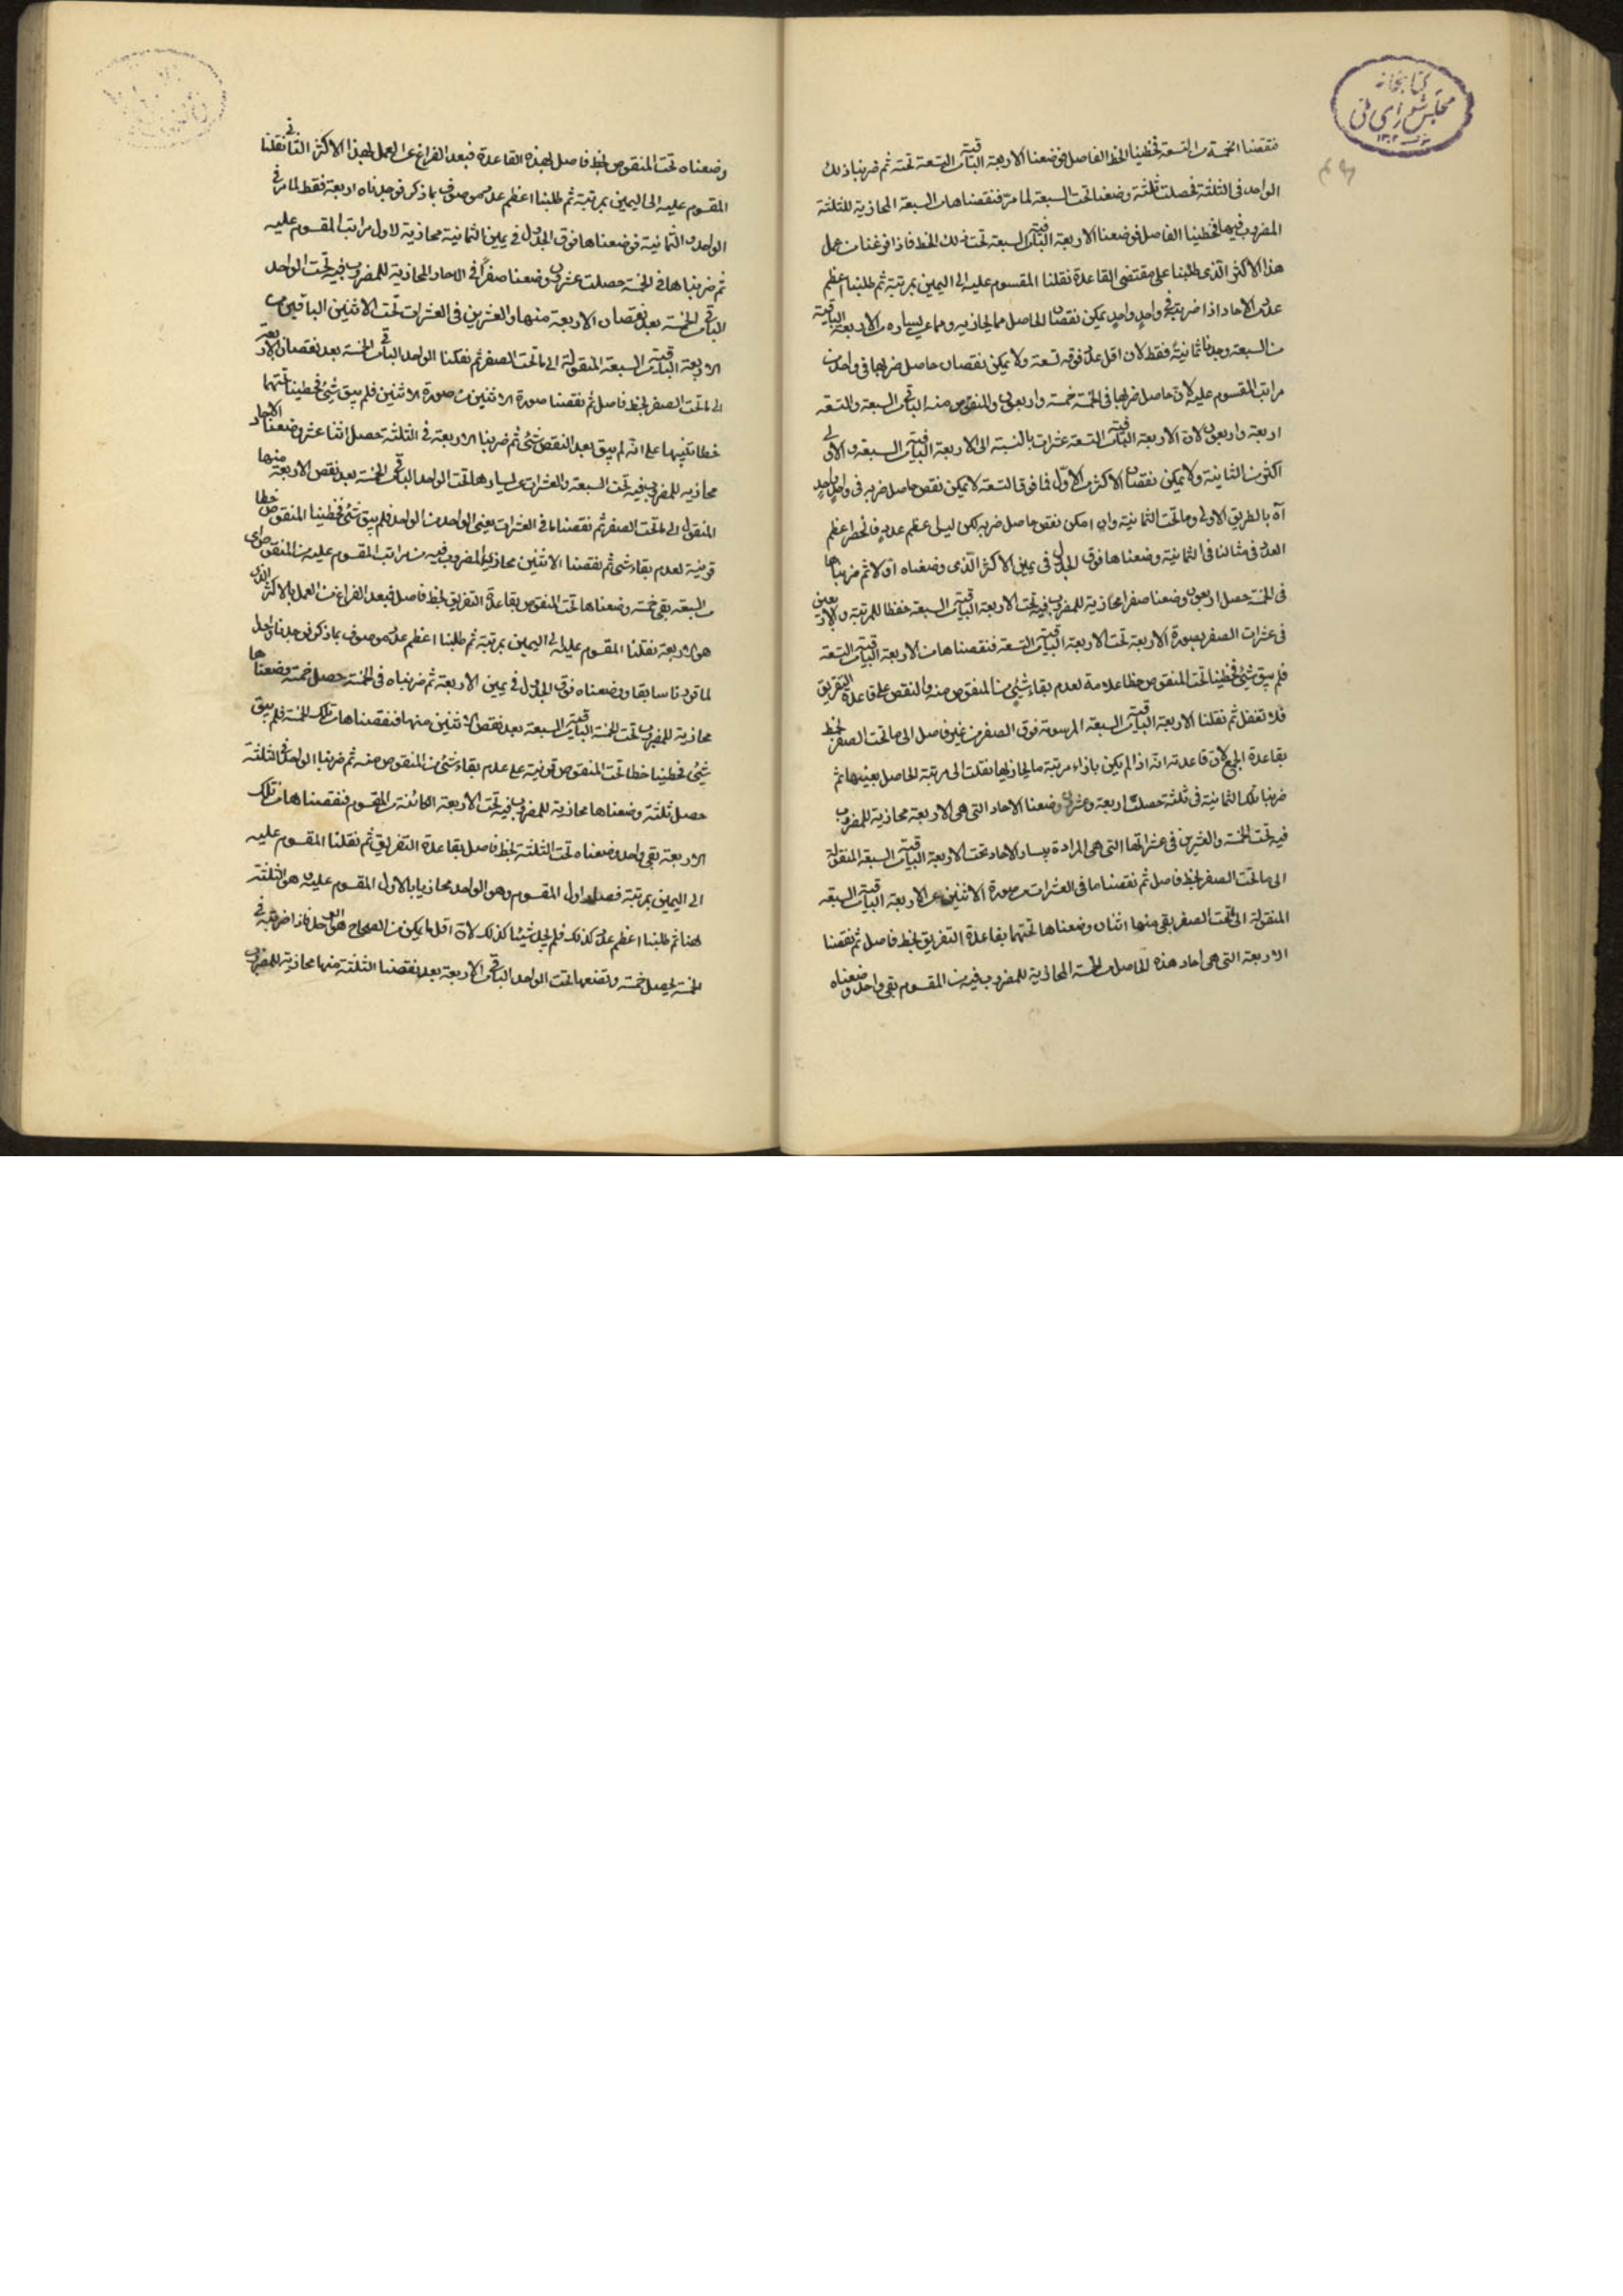 كتابخانه
مجلس شوراى ملى
فنقصنا الخمسة من التسعة فخططنا الخط الفاصل فوضعنا الاربعة الباقية من التسعة تحته ثم ضربنا ذلك
الواحد فى الثلثة فحصلت ثلثة وضعناها تحت السبعة لما مر فنقصناها من السبعة المحاذية للثلثة
المضروب فيها فخططنا الفاصل فوضعنا الاربعة الباقية من السبعة تحت ذلك الخط فاذا فرغنا من عمل
هذا الاكثر الذى طلبنا على مقتضى القاعدة نقلنا المقسوم عليه الى اليمين بمرتبة ثم طلبنا اعظم
عدد من الآحاد اذا ضربته فى واحد واحد يمكن نقصان الحاصل مما يحاذيه ومما على يساره من الاربعة الباقية
من السبعة وجدنا ثمانية فقط لان اقل عدد فوقه تسعة ولا يمكن نقصان حاصل ضربها فى واحد من
مراتب المقسوم عليه لان حاصل ضربها فى الخمسة خمسة واربعون والمنقوص منه الباقى من السبعة والتسعة
اربعة واربعون لان الاربعة الباقية من التسعة عشرات بالنسبة الى الاربعة الباقية من السبعة والاولى
اكثر من الثانية ولا يمكن نقصان الاكثر من الاقل فما فوق التسعة لا يمكن نقص حاصل ضربه فى واحد واحد
آه بالطريق الاولى وما تحت الثمانية وان امكن نقص حاصل ضربه لكن ليس اعظم عدد فانحصر اعظم
العدد فى مثالنا فى الثمانية وضعناها فوق الجدول فى يمين الاكثر الذى وضعناه اولا ثم ضربناها
فى الخمسة حصل اربعون وضعنا صفرا محاذية للمضروب فيه تحت الاربعة الباقية من السبعة حفظا للمرتبة والاربعين
فى عشرات الصفر بصورة الاربعة تحت الاربعة الباقية من التسعة فنقصناها من الاربعة الباقية من التسعة
فلم يبق شئ فخططنا تحت المنقوص خطا علامة لعدم بقاء شئ من المنقوص منه والنقص على قاعدة التفريق
فلا تغفل ثم نقلنا الاربعة الباقية من السبعة المرسومة فوق الصفر من غير فاصل الى ما تحت الصفر بخط
بقاعدة الجمع لان قاعدته انه اذا لم يكن بازاء مرتبة ما يحاذيها نقلت الى مرتبة الحاصل بعينها ثم
ضربنا تلك الثمانية فى ثلثة حصلت اربعة وعشرون وضعنا الاحاد التى هى الاربعة محاذية للمضروب
فيه تحت الخمسة والعشرين فى عشراتها التى هى المرادة بيسار الاحاد تحت الاربعة الباقية من السبعة المنقولة
الى ما تحت الصفر بخط فاصل ثم نقصنا ما فى العشرات من صورة الاثنين عن الاربعة الباقية من السبعة
المنقولة الى ما تحت الصفر بقى منها اثنان وضعناها تحتهما بقاعدة التفريق بخط فاصل ثم نقصنا
الاربعة التى هى احاد هذه الحاصل من الخمسة المحاذية للمضروب فيه من المقسوم بقى واحد وضعناه
وضعناه تحت المنقوص بخط فاصل بهذه القاعدة فبعد الفراغ عن العمل بهذا الاكثر الثانى نقلنا
المقسوم عليه الى اليمين بمرتبة ثم طلبنا اعظم عدد موصوف بما ذكر فوجدناه اربعة فقط لما مر فى
الواحد والثمانية فوضعناها فوق الجدول فى يمين الثمانية محاذية لاول مراتب المقسوم عليه
ثم ضربناها فى الخمسة حصلت عشرون وضعنا صفرا فى الاحاد المحاذية للمضروب فيه تحت الواحد
الباقى من الخمسة بعد نقصان الاربعة منها والعشرين فى العشرات تحت الاثنين الباقيين من
الاربعة الباقية من السبعة المنقولة الى ما تحت الصفر ثم نقلنا الواحد الباقى من الخمسة بعد نقصان الاربعة
الى ما تحت الصفر بخط فاصل ثم نقصنا صورة الاثنين من صورة الاثنين فلم يبق شئ فخططنا تحتهما
خطا تنبيها على انه لم يبق بعد النقص شئ ثم ضربنا الاربعة فى الثلثة حصل اثنا عشر وضعنا الاحاد
محاذية للمضروب فيه تحت السبعة والعشرات على يسارها تحت الواحد الباقى من الخمسة بعد نقص الاربعة منها
المنقول الى ما تحت الصفر ثم نقصنا ما فى العشرات يعنى الواحد من الواحد فلم يبق شئ فخططنا المنقوص خطا
قرينة لعدم بقاء شئ ثم نقصنا الاثنين محاذية المضروب فيه من مراتب المقسوم عليه من المنقوص
من السبعة بقى خمسة وضعناها تحت المنقوص بقاعدة التفريق بخط فاصل فبعد الفراغ من العمل بالاكثر الذى
هو الاربعة نقلنا المقسوم عليه الى اليمين بمرتبة ثم طلبنا اعظم عدد موصوف بما ذكر فوجدنا واحدا
لما قررنا سابقا وضعناه فوق الجدول فى يمين الاربعة ثم ضربناه فى الخمسة حصل خمسة وضعناها
محاذية للمضروب تحت الخمسة الباقية من السبعة بعد نقص الاثنين منها فنقصناها من تلك الخمسة فلم يبق
شئ فخططنا خطا تحت المنقوص قرينة على عدم بقاء شئ من المنقوص منه ثم ضربنا الواحد فى الثلثة
حصل ثلثة وضعناها محاذية للمضروب فيه تحت الاربعة الكائنة من المقسوم فنقصناها من تلك
الاربعة بقى واحد وضعناه تحت الثلثة بخط فاصل بقاعدة التفريق ثم نقلنا المقسوم عليه
الى اليمين بمرتبة فصار اول المقسوم وهو الواحد محاذيا بالاول المقسوم عليه وهو الثلثة
هنا ثم طلبنا اعظم عدد كذلك فلم نجد شيئا كذلك لان اقل ما يمكن من الصحاح هو الواحد فاذا ضربته فى
الخمسة يحصل خمسة وتضعها تحت الواحد الباقى من الاربعة بعد نقصنا الثلثة منها محاذية للمضروب